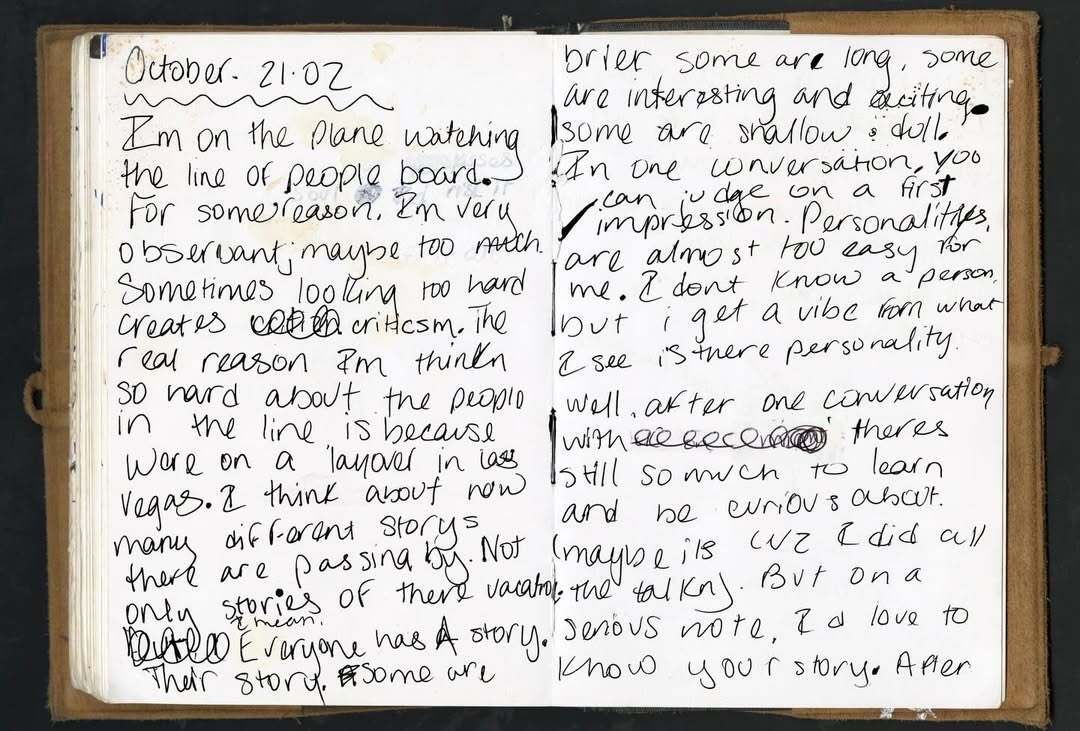 October. 21.02
I'm on the plane watching
the line of people board.
For some reason, I'm very
observant; maybe too much.
Sometimes looking too hard
creates criticsm. The
real reason I'm thinkn
so hard about the people
in the line, is because
were on a layover in las
vegas. I think about how
many different storys
there are passing by. Not
only stories of there vacation.
I mean.
Everyone has A story.
Their story. some are
brief some are long, some
are interesting and exciting.
some are shallow & dull.
In one conversation, you
can judge on a first
impression. Personalities,
are almost too easy for
me. I dont know a person,
but i get a vibe from what
I see is there personality.
well, after one conversation
with theres
still so much to learn
and be curious about.
(maybe its cuz I did all
the talkn). But on a
serious note, I d love to
know your story. After